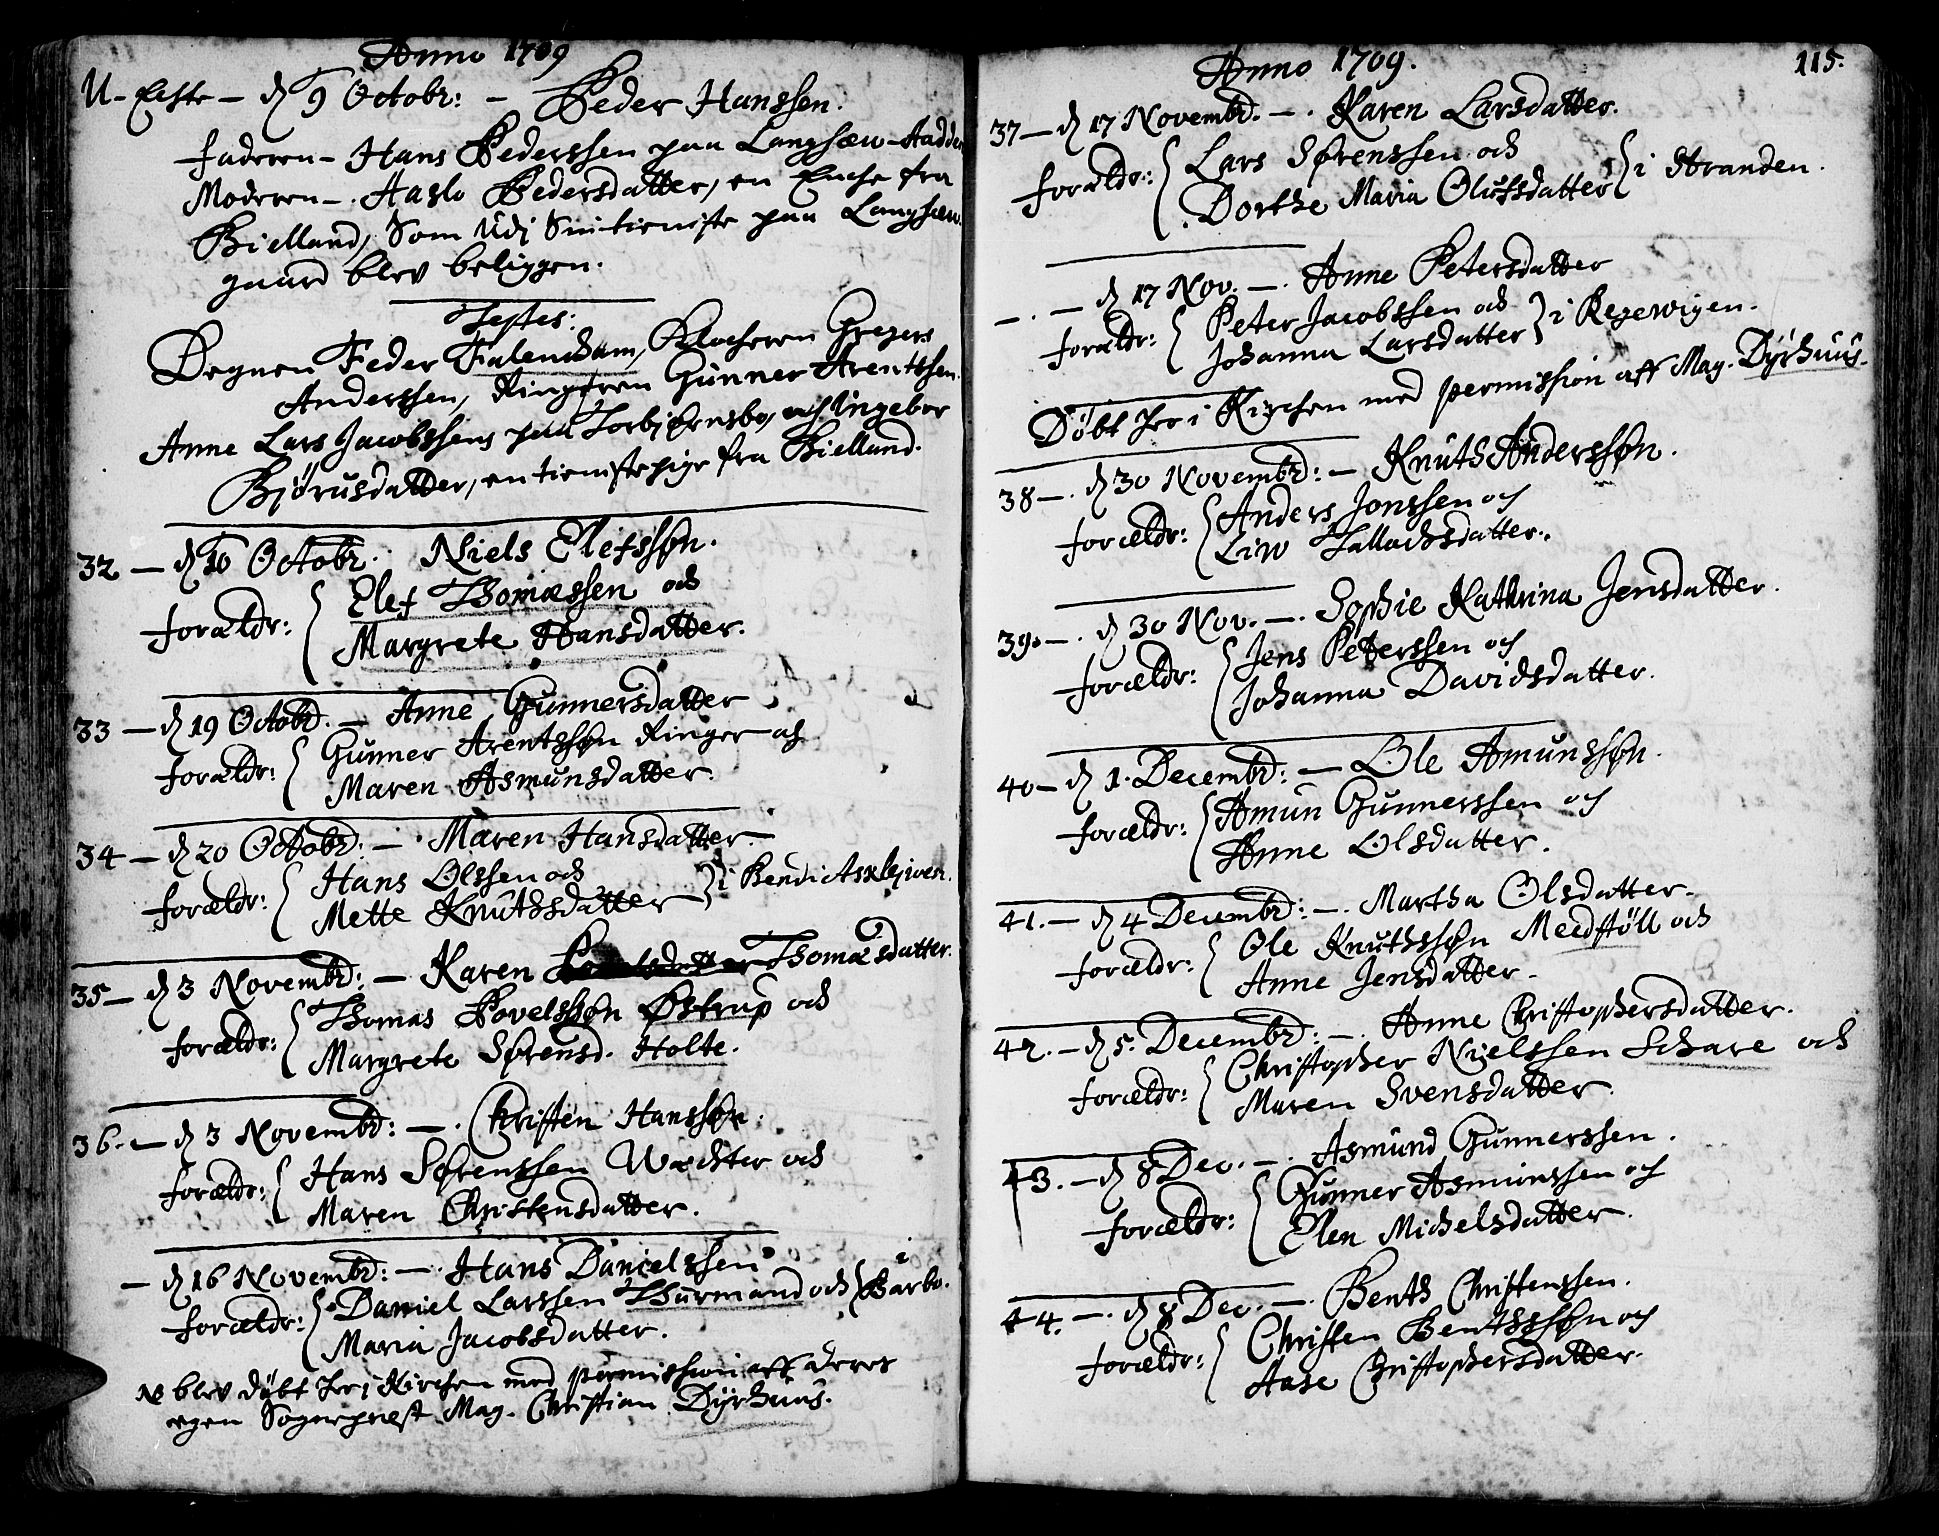 Anno 1709
U-Echte - d 9 Octobr: - Peder Hanssen.
faderen - Hans Pederssen paa Langsæw-Aadde
Moderen -. Aaslo Pedersdatter, en Enche fra
Bielland, Som Udj Sin tieniste paa Langsæw
gaard blev beliggen.
Testes:
Degnen Feder Falencham, Klocheren Gregers
Anderssen, Ringeren Gunner Arentssen.
Anne Lars Jacobssens paa Torbjørnsbo, och Ingebor
Bjørusdatter, en tienistepige fra Bielland.
32 - d 10 Octobr. Niels Elefssøn.
forældr: Elef Thomæssen och
Margrete Hansdatter.
33 - d 19 Octobr. - Anne Gunnersdatter
forældr: Gunner Arentssøn Ringer och
Maren Asmunsdatter.
34 - d 20 Octobr: - Maren Hansdatter.
forældr: Hans Olssen och
Mette Knuthsdatter i Bendi Asklejwen.
35 - d 3 Novembr: - Karen Thomæsdatter.
forældr: Thomas Povelssøn Østrup och
Margrete Sørensd. Holte.
36. - d 3 Novembr: -. Christen Hanssøn.
forældr: Hans Sørenssen Wæchter och
Maren Christensdatter.
- d 16 Novembr: -. Hans Danielssen
forældr: Daniel Larssen Thurmand och i Barbo.
Maria Jacobsdatter.
NB blev døbt her i Kirchen med permission aff deres
egen Sogneprest Mag. Christian Dyrhuus.
Anno 1709.
115.
37 - d 17 Novembr. -. Karen Larsdatter.
forældr: Lars Sørenssen och
Dorthe Maria Olufsdatter i Stranden.
-. - d 17 Nov. -. Anne Petersdatter
forældr: Peter Jacobssen och
Johanna Larsdatter i Regewigen.
Døbt her i Kirchen med permission aff Mag. Dyrhuus.
38 -. d 30 Novembr: - Knuth Anderssøn.
forældr: Anders Jonssen och
Liw Tallachsdatter.
39. -. d 30 Nov. -. Sophie Kathrina Jensdatter.
forældr: Jens Peterssen och
Johanna Davidsdatter.
40 - d 1. Decembr: - Ole Amunssøn.
forældr: Amun Gunnerssen och
Anne Olsdatter.
41. - d 4 Decembr: -. Martha Olsdatter.
forældr: Ole Knuthssøn Meedstøll och
Anne Jensdatter.
42. - d 5. Decembr: -. Anne Christophersdatter.
forældr: Christopher Nielssen Schare och
Maren Svensdatter.
43. - d 8 Dec. -. Asmund Gunnerssen.
forældr: Gunner Asmunssen och
Elen Michelsdatter.
44. -. d 8 Dec. -. Benth Christenssen.
forældr: Christen Benthssøn och
Aase Christophersdatter.